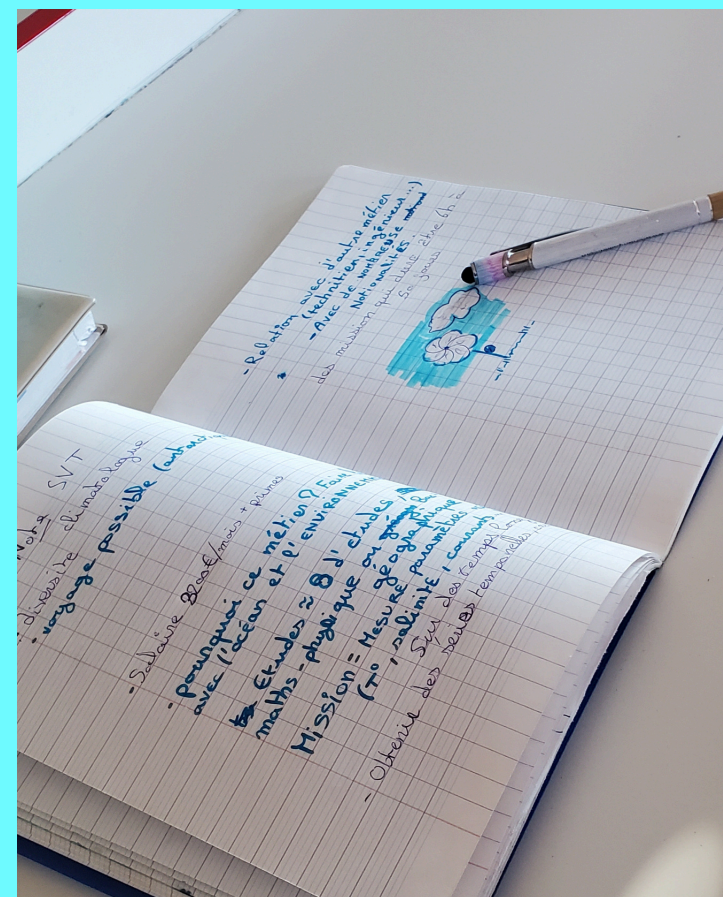 Note SVT
- diversité climatologue
- voyage possible
- Salaire 3200€/mois + primes
- pourquoi ce métier ? Faire
avec l'océan et l'ENVIRONNEM
Etudes ≈ 8 d'études,
maths - physique ou géographique
Mission = Mesure paramètres
(T°, salinité, courant
Sur des temp long
- Obtenir des series temporelles
- Relation avec d'autre métier
(technitien, ingénieur...)
- AVEC DE NOMBREUSE
Nationalités.
des mission qui dure être 6h à
50 jours